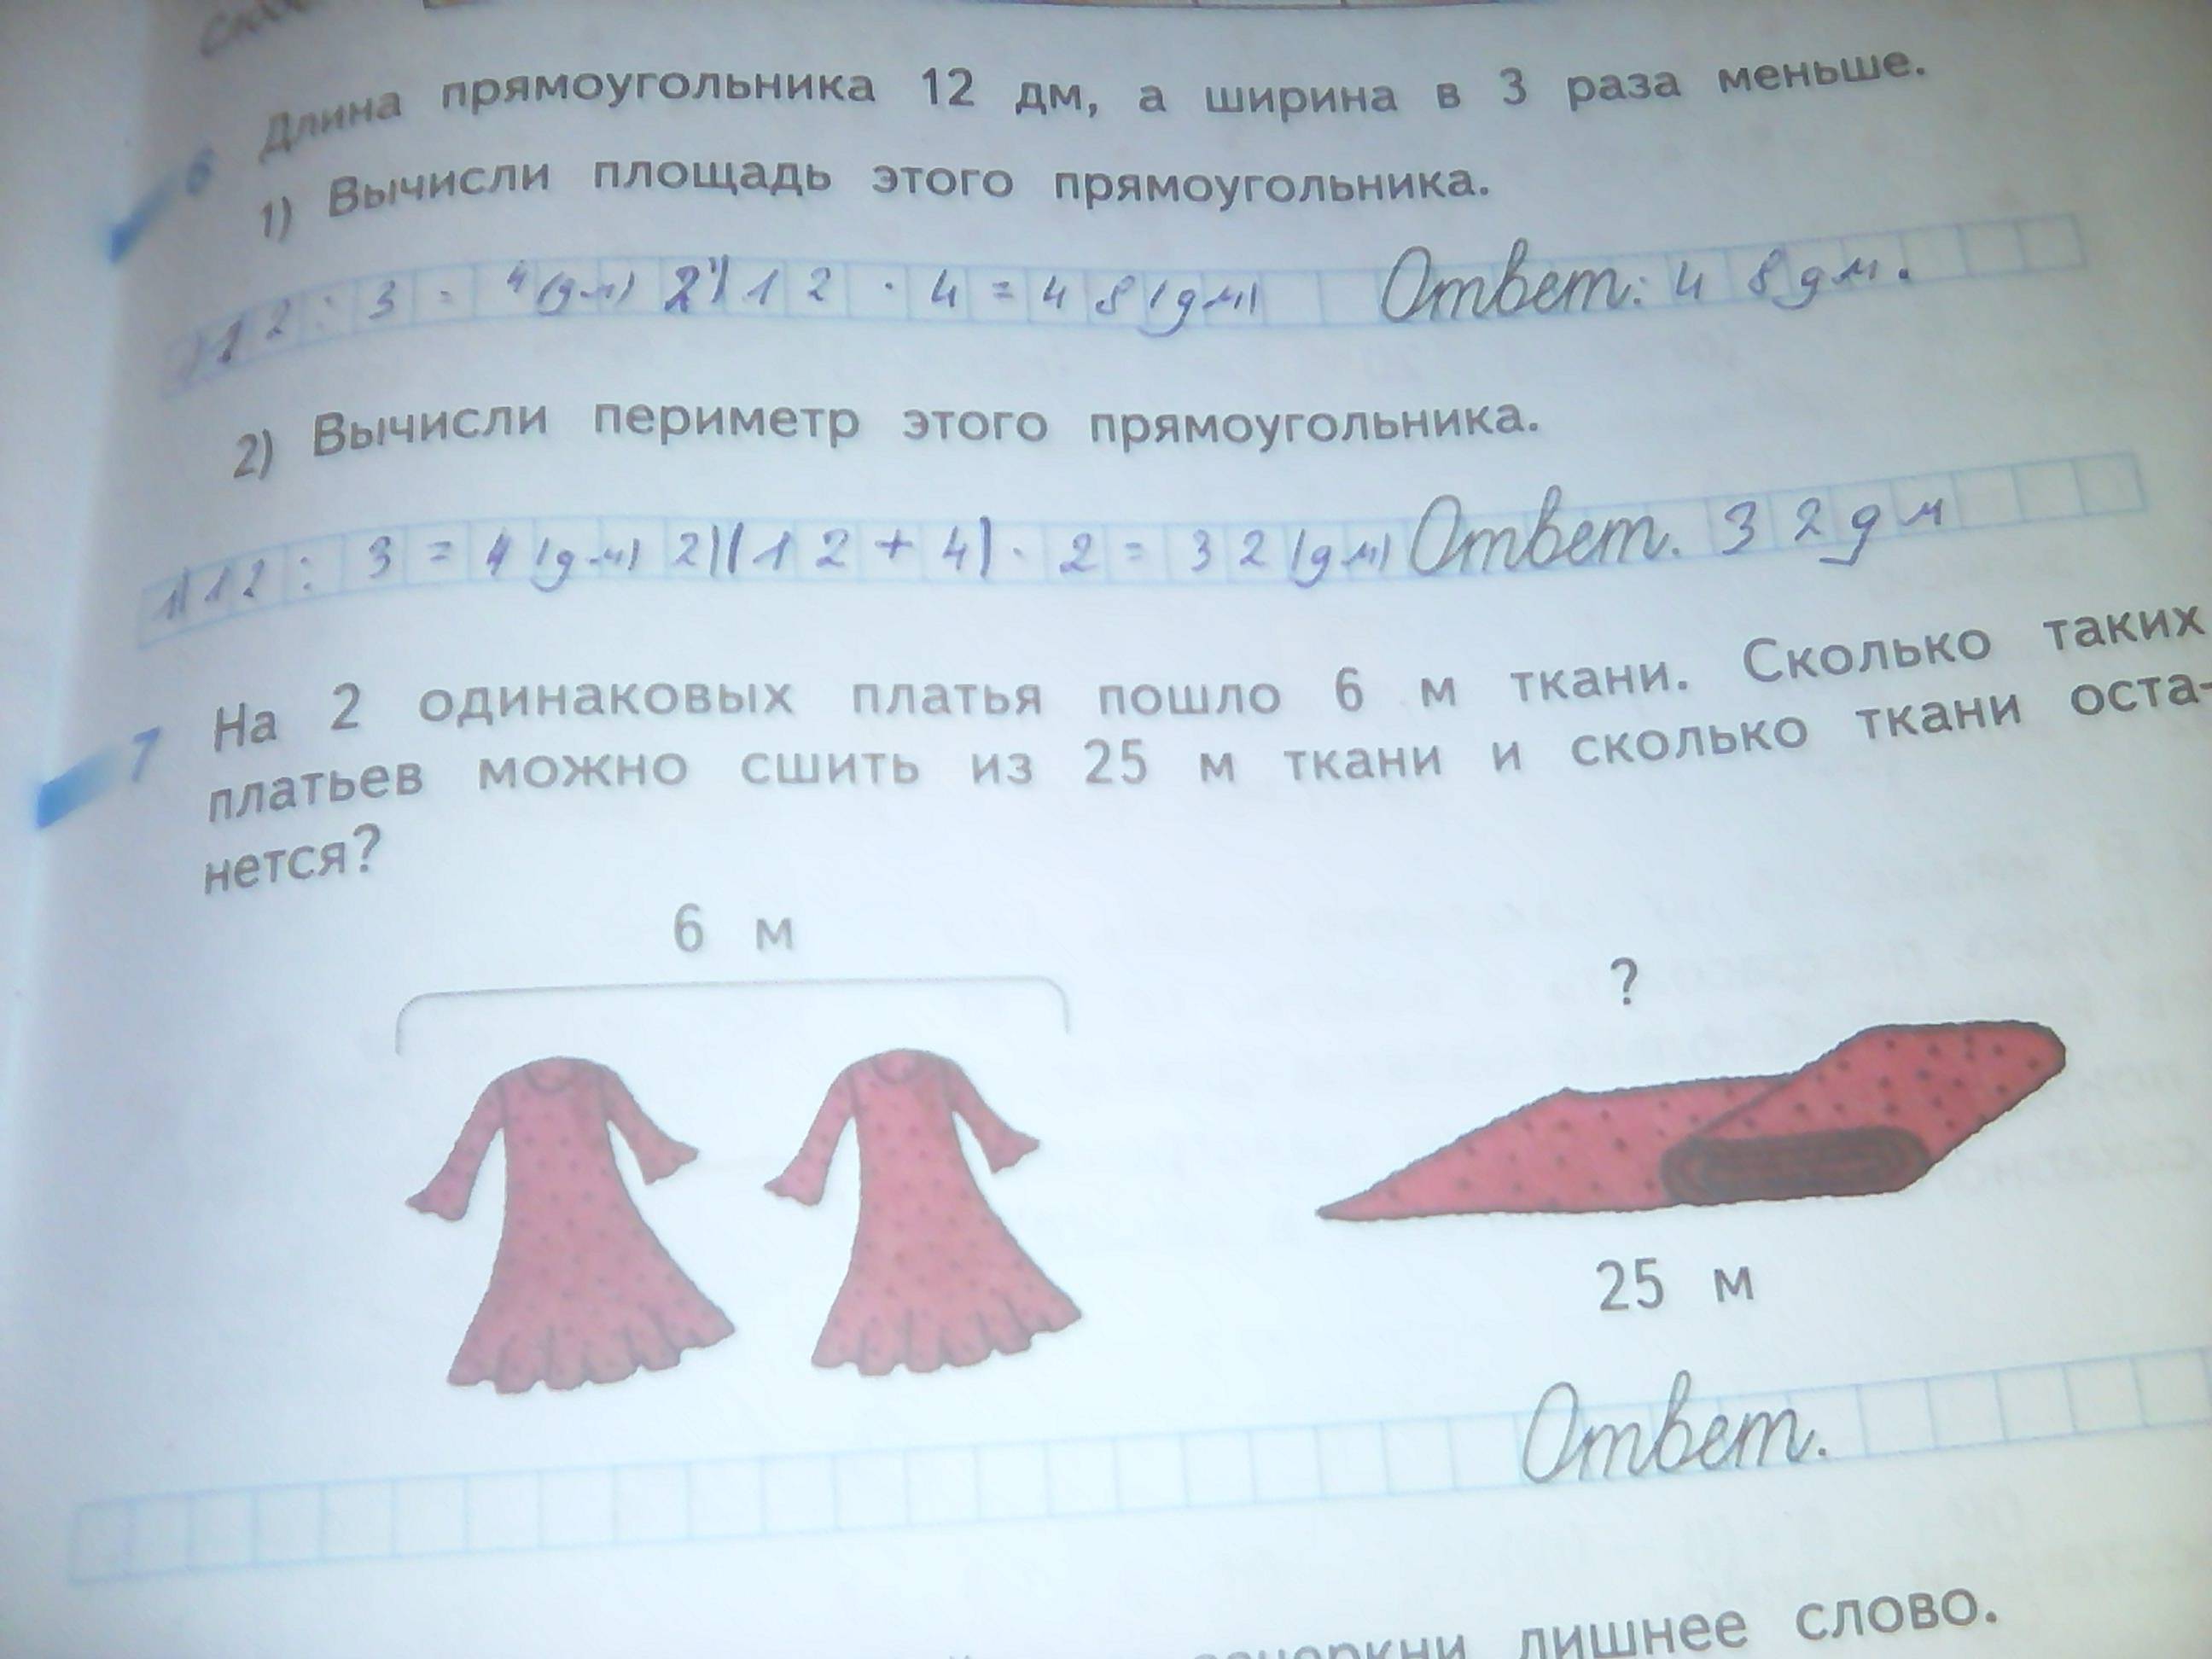 6 Длина прямоугольника 12 дм, а ширина в 3 раза меньше.
1) Вычисли площадь этого прямоугольника.
1) 12 : 3 = 4 (дм) 2) 12 · 4 = 48 (дм) Ответ: 48 дм.
2) Вычисли периметр этого прямоугольника.
1) 12 : 3 = 4 (дм) 2) (12 + 4) · 2 = 32 (дм) Ответ. 32 дм
7 На 2 одинаковых платья пошло 6 м ткани. Сколько таких
платьев можно сшить из 25 м ткани и сколько ткани оста-
нется?
6 м
?
25 м
Ответ.
лишнее слово.